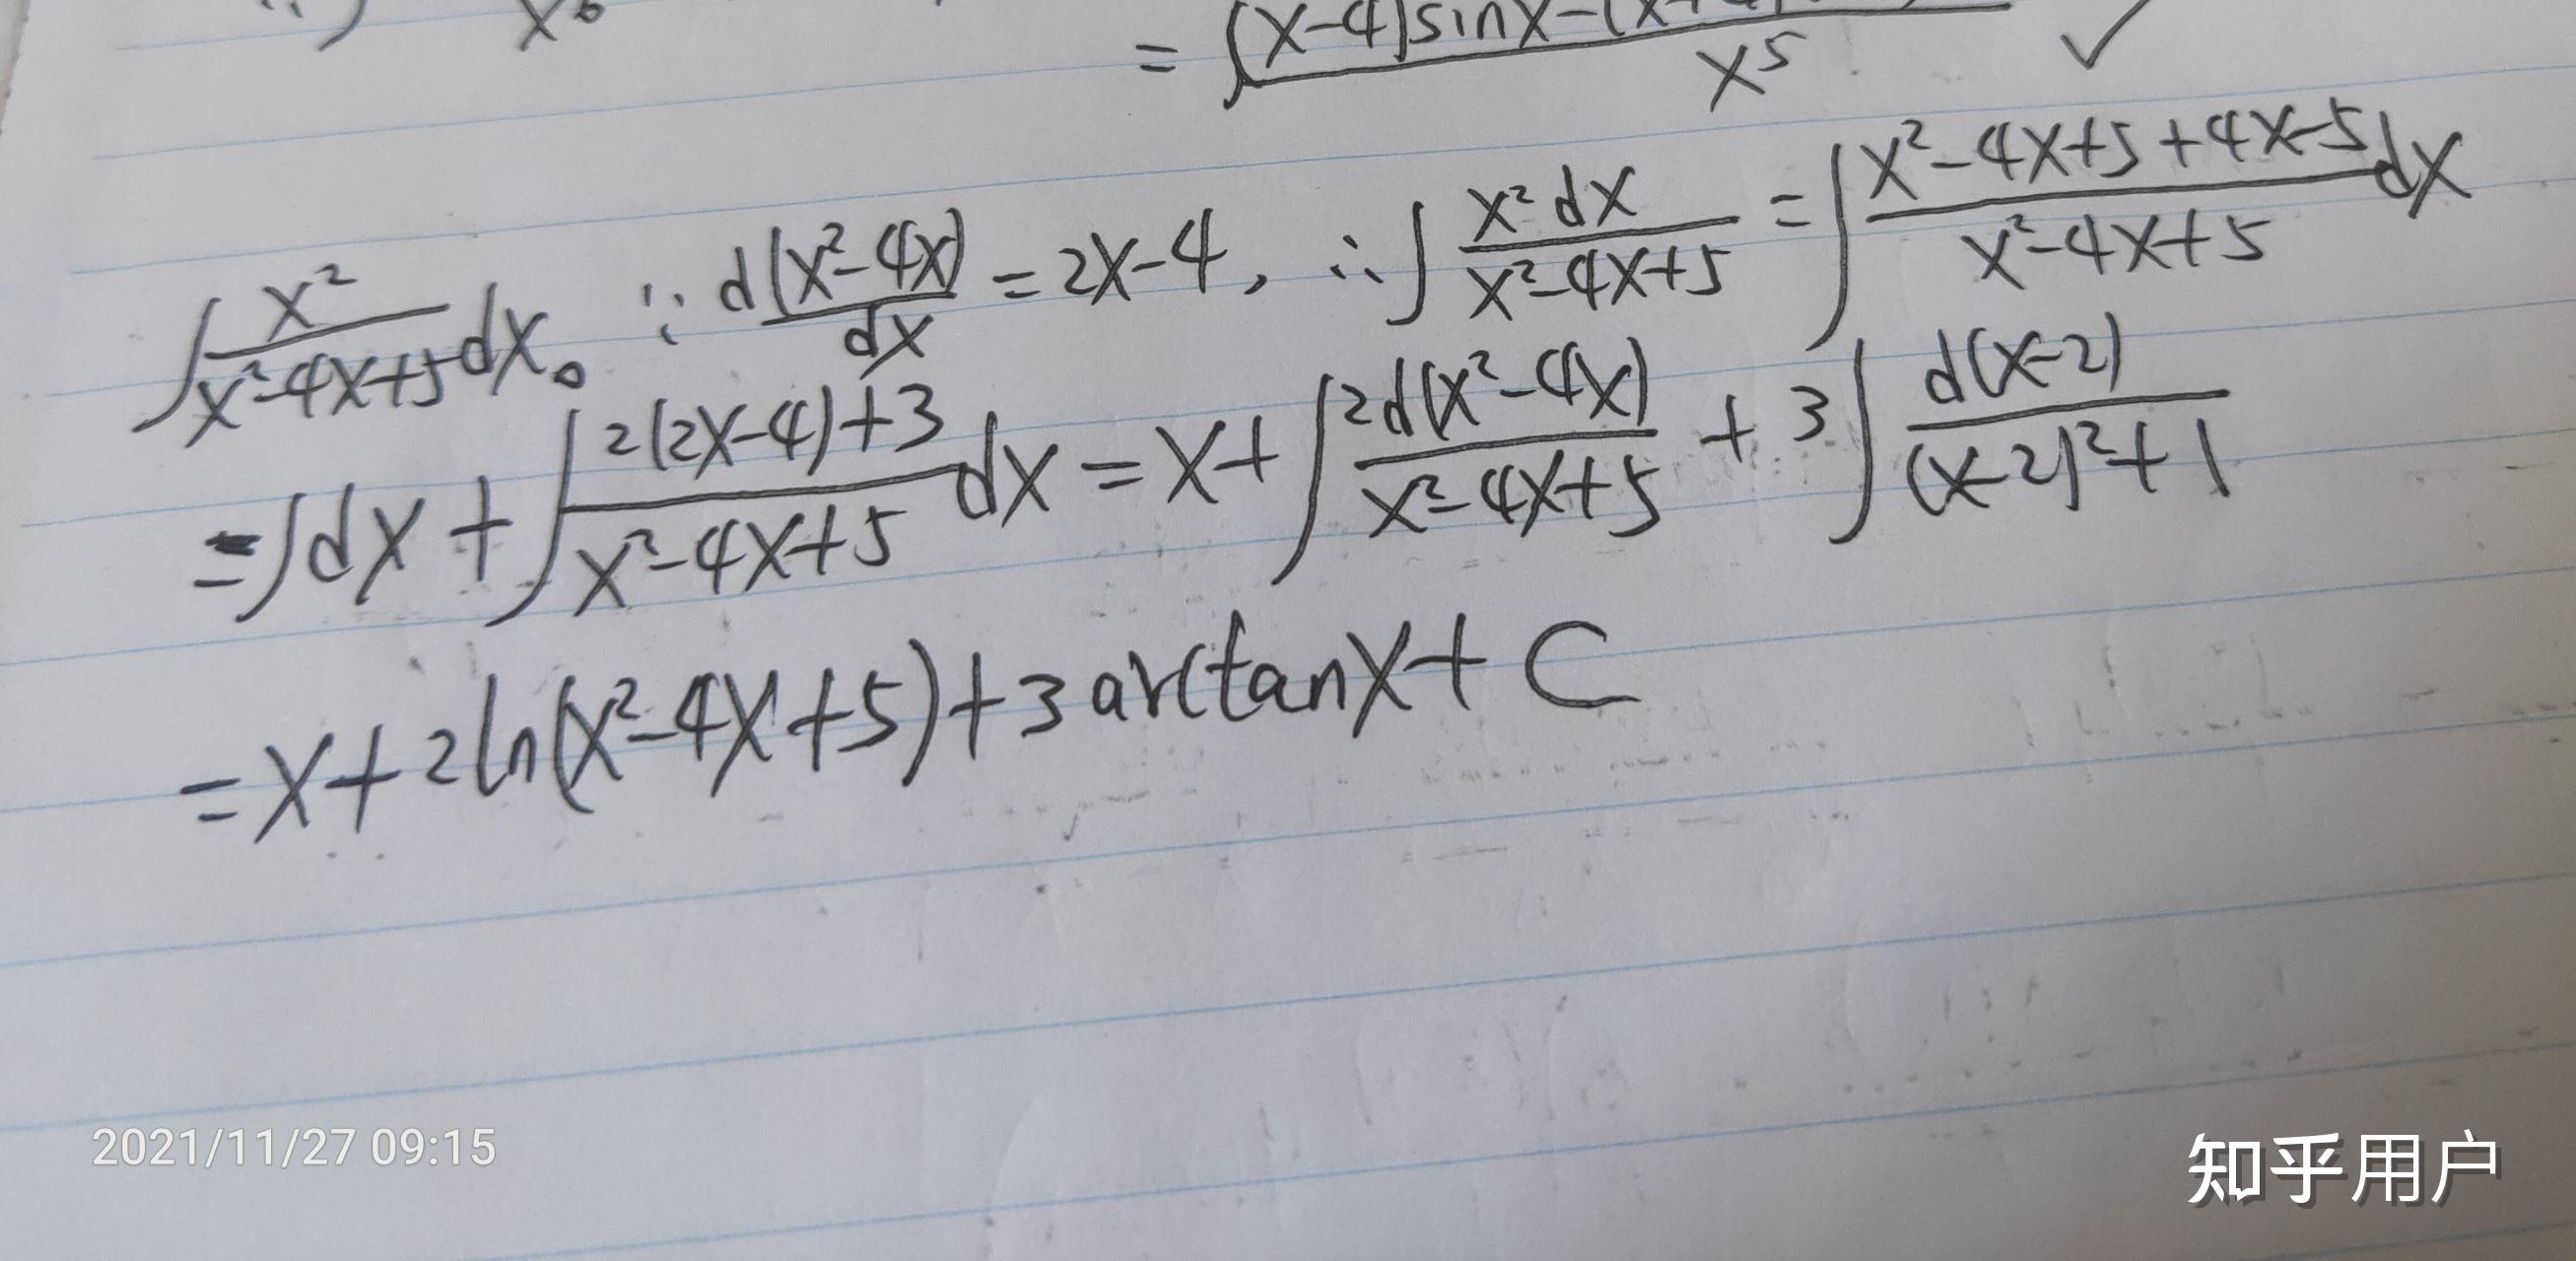 x⁶
= ((x-4)sinx-(x+4)
x⁵ ✓
∫ x²/(x²-4x+5) dx。 ∵ d(x²-4x)/dx = 2x-4, ∴ ∫ x²dx/(x²-4x+5) = ∫ (x²-4x+5+4x-5)/(x²-4x+5) dx
= ∫dx + ∫ (2(2x-4)+3)/(x²-4x+5) dx = x + ∫ 2d(x²-4x)/(x²-4x+5) + 3∫ d(x-2)/((x-2)²+1)
= x+2ln(x²-4x+5)+3arctanx+C
2021/11/27 09:15
知乎用户